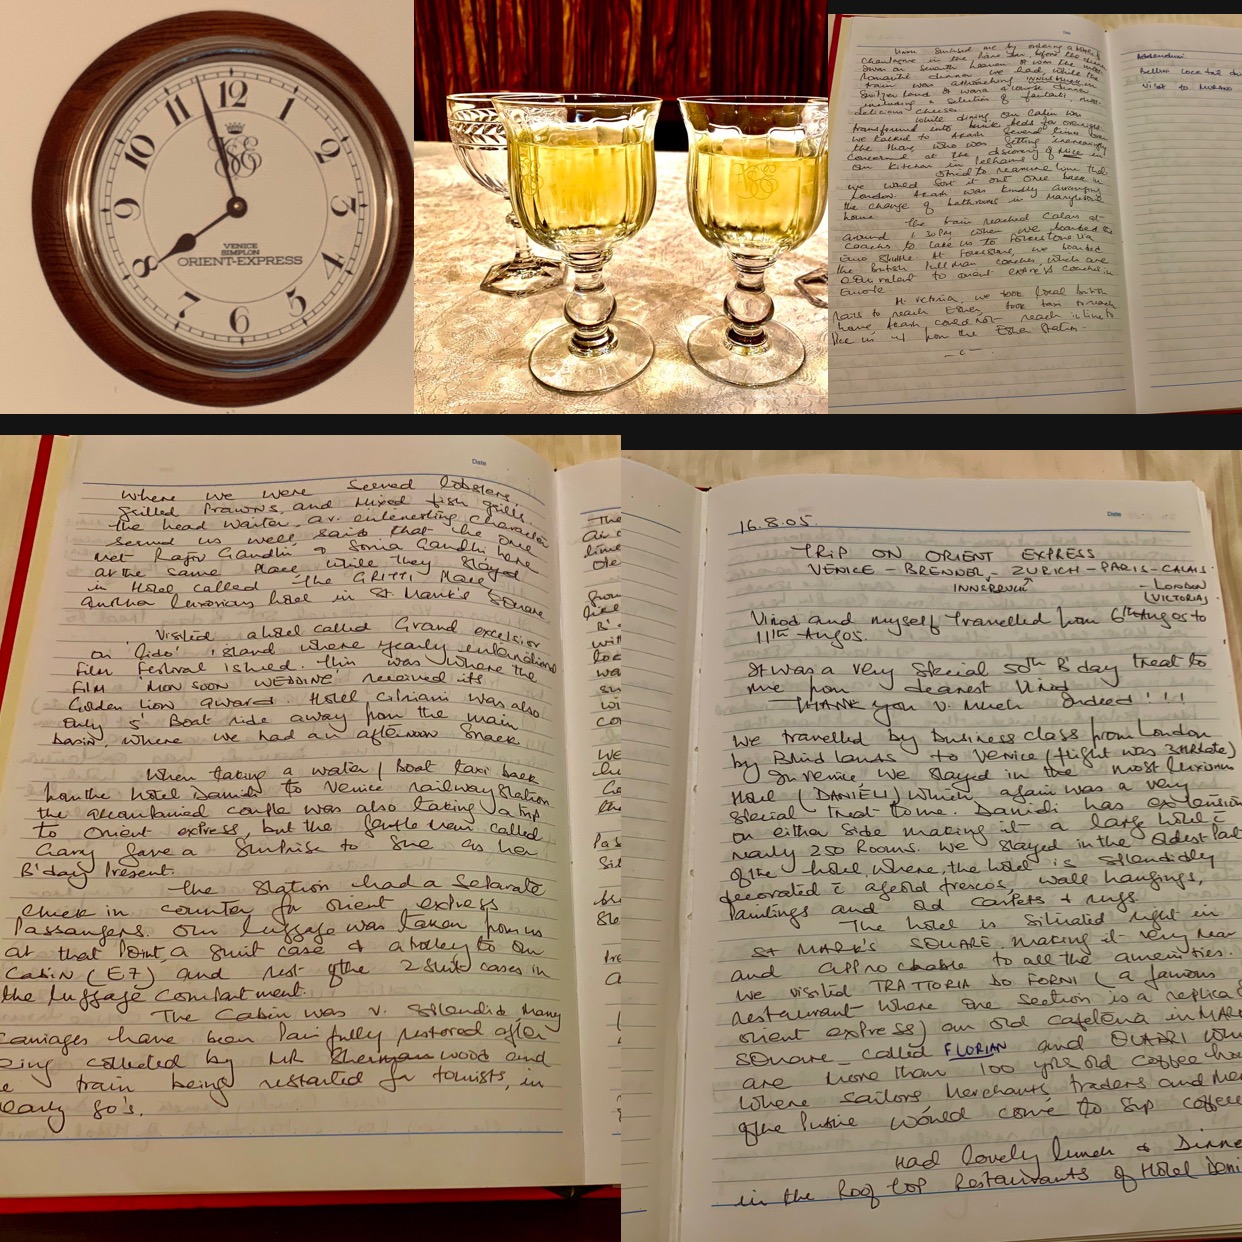 12
1
2
3
4
5
6
7
8
9
10
11
VENICE
SIMPLON
ORIENT-EXPRESS
Date
surprised me by ordering a bottle of
Champagne in the piano bar, before the dinner
was on seventh heaven. It was the most
romantic dinner we had, while the
train was approaching INNSBRUCK in
Switzerland & was a 4 course dinner
including a selection of
delicious cheeses.
While dining our Cabin was
transformed into bunk beds for overnight.
We talked to Akash several times over
the phone who was getting increasingly
Concerned at the discovery of Mice in
our kitchen in Pelhams.
Tried to reassure him that
we would sort it out once back in
London. Akash was kindly arranging
the change of bathrooms in
home.
The train reached Calais at
around 1.30pm when we boarded the
Coaches to take us to Folkestone via
Euro Shuttle. At Folkestone, we boarded
the British Pullman coaches, which are
equivalent to orient express coaches in
Europe.
At Victoria, we took local British
Rails to reach Esher, took taxi to reach
home, Akash could not reach in time to
Pick us up from the Esher Station.
Bellini Cocktail
Visit to MURANO
Date
where we were served lobsters,
grilled Prawns, and mixed fish grills.
the head waiter, an interesting character
served us well said that he once
met Rajiv Gandhi & Sonia Gandhi here
at the same place while they stayed
in Hotel called The GRITTI Place
another luxurious hotel in St Mark's Square
Visited a hotel called Grand excelsior
on 'Lido' island where yearly international
Film Festival is held. This was where the
film 'MON SOON WEDDING' received its
Golden Lion award. Hotel Cipriani was also
only 5' Boat ride away from the main
basin, where we had an afternoon snack.
When taking a water / Boat taxi back
from the hotel Danieli to Venice railway station
the accompanied couple was also taking a trip
to Orient express, but the gentleman called
Gary gave a surprise to Sue as her
B'day Present.
The Station had a Separate
Check in counter for orient express
Passengers. Our luggage was taken from us
at that Point, a suit case & a trolley to our
Cabin (E7) and rest of the 2 suit cases in
the luggage compartment.
The Cabin was v. splendid, many
carriages have been Painfully restored after
being collected by MR Sherman wood and
train being restarted for tourists, in
early 80's.
Date
16.8.05.
TRIP ON ORIENT EXPRESS
VENICE - BRENNER - ZURICH - PARIS - CALAIS
INNSBRUCK
- LONDON
(VICTORIA)
Vinod and myself travelled from 6th Aug 05 to
11th Aug 05.
It was a very special 50th B'day treat to
me from dearest Vinod
THANK you v. much indeed!!!
We travelled by business class from London
by BMI lands to Venice (flight was 3HR late)
In venice we stayed in the most luxurious
Hotel (DANIELI) which again was a very
special treat to me. Danieli has extension
on either side making it a large hotel c̄
nearly 250 Rooms. We stayed in the oldest Part
of the hotel, where, the hotel is splendidly
decorated c̄ age old frescos, wall hangings,
Paintings and old carpets & rugs
The hotel is situated right in
ST MARK'S SQUARE, making it very near
and approchable to all the amenities.
We visited TRATTORIA DO FORNI (a famous
restaurant where one section is a replica of
orient express) an old cafeteria in
SQUARE called FLORIAN and QUADRI
are more than 100 yrs old coffee
where sailors Merchants, traders and
of the Public would come to sip coffee
Had lovely lunch & Dinner
in the Roof top Restaurants of Hotel